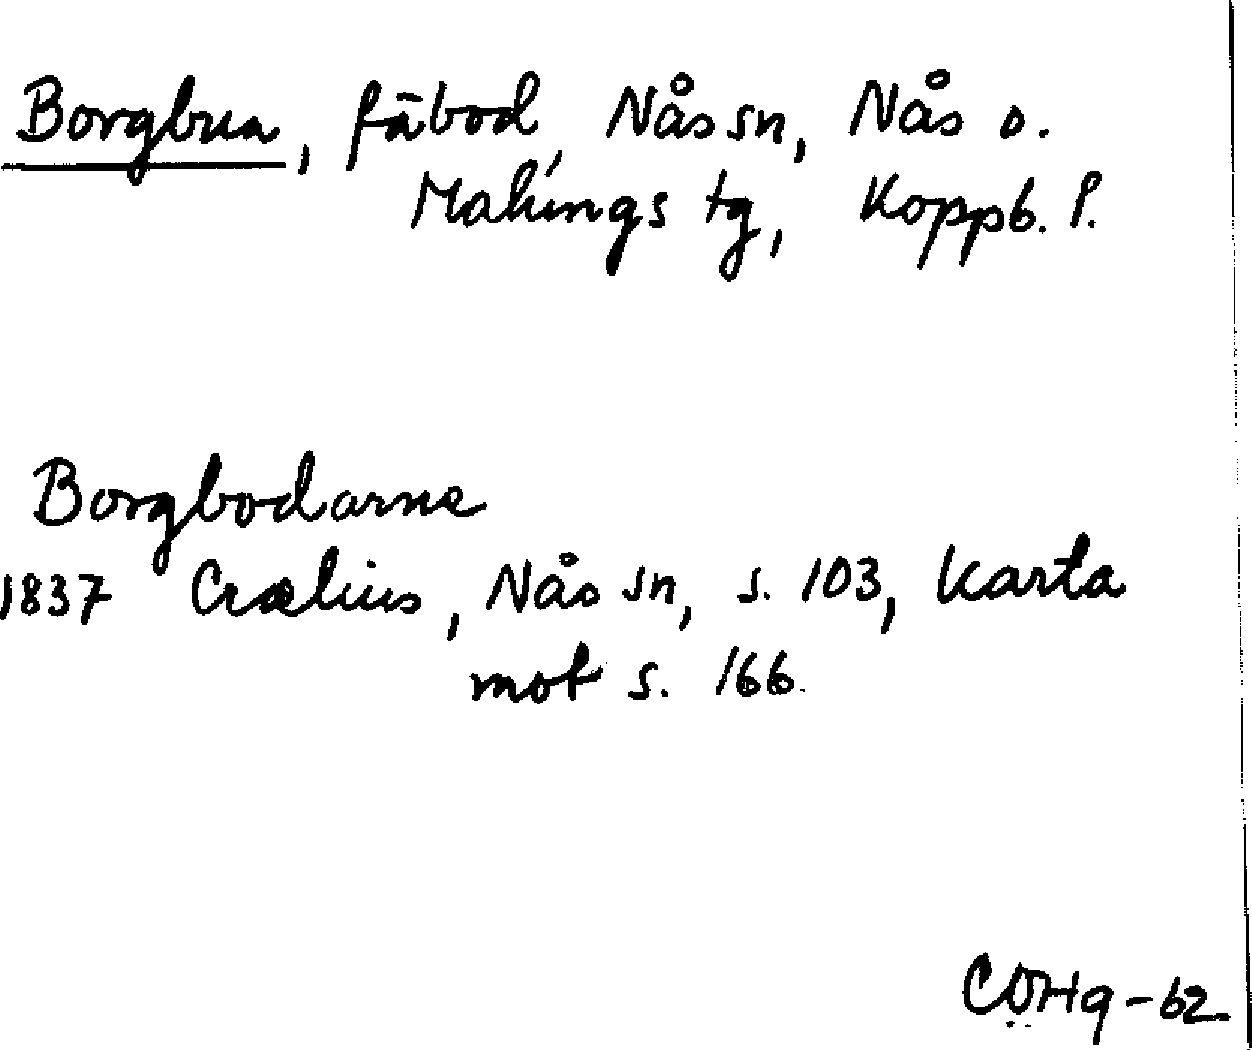 Borgbua, fäbod, Nås sn, Nås o.
Malings tg, Koppb. l.
Borgbodarne
1837 Crælius, Nås sn, s. 103, karta
mot s. 166.